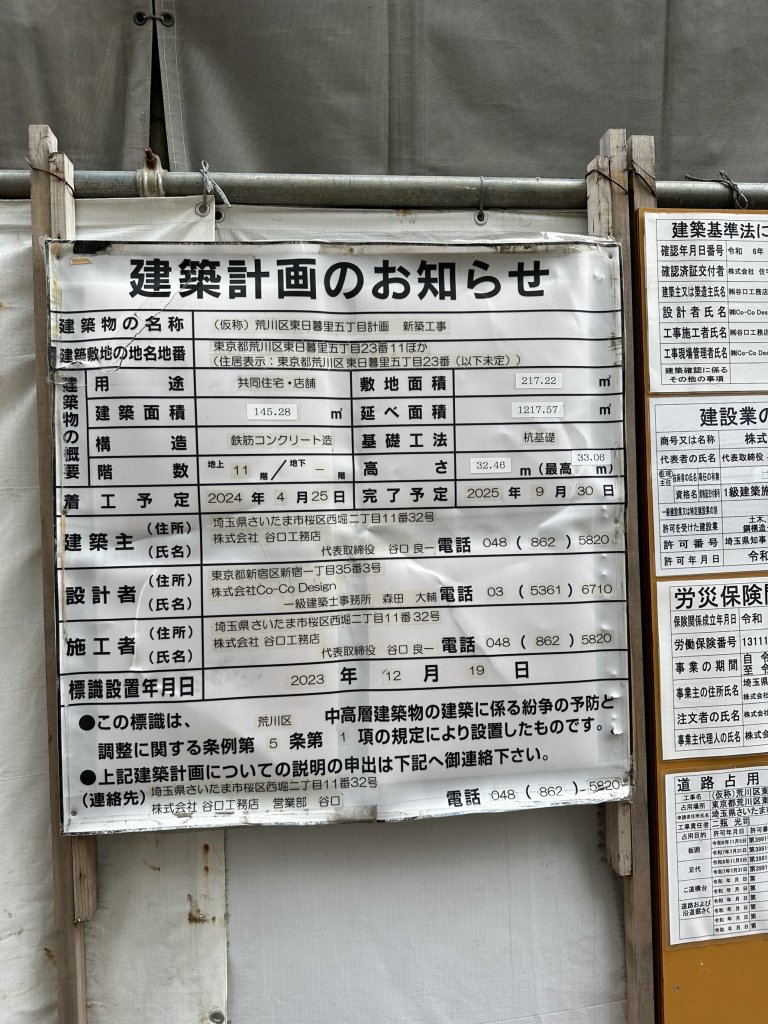 建築計画のお知らせ
建築物の名称 (仮称)荒川区東日暮里五丁目計画 新築工事
建築敷地の地名地番 東京都荒川区東日暮里五丁目23番11ほか
(住居表示:東京都荒川区東日暮里五丁目23番(以下未定))
建築物の概要
用途 共同住宅・店舗 敷地面積 217.22 ㎡
建築面積 145.28 ㎡ 延べ面積 1217.57 ㎡
構造 鉄筋コンクリート造 基礎工法 杭基礎
階数 地上 11 階/地下 - 階 高さ 32.46 m(最高 33.06 m)
着工予定 2024 年 4 月 25 日 完了予定 2025 年 9 月 30 日
建築主 (住所) 埼玉県さいたま市桜区西堀二丁目11番32号
(氏名) 株式会社 谷口工務店
代表取締役 谷口 良一 電話 048 ( 862 ) 5820
設計者 (住所) 東京都新宿区新宿一丁目35番3号
(氏名) 株式会社Co-Co Design
一級建築士事務所 森田 大輔 電話 03 ( 5361 ) 6710
施工者 (住所) 埼玉県さいたま市桜区西堀二丁目11番32号
(氏名) 株式会社 谷口工務店
代表取締役 谷口 良一 電話 048 ( 862 ) 5820
標識設置年月日 2023 年 12 月 19 日
●この標識は、 荒川区 中高層建築物の建築に係る紛争の予防と
調整に関する条例第 5 条第 1 項の規定により設置したものです。
●上記建築計画についての説明の申出は下記へ御連絡下さい。
(連絡先) 埼玉県さいたま市桜区西堀二丁目11番32号
株式会社 谷口工務店 営業部 谷口 電話 048 ( 862 ) 5820
建築基準法に
確認年月日番号 令和 6年
確認済証交付者 株式会社 住宅
建築主又は築造主氏名 ㈱谷口工務店
設計者氏名 ㈱Co-Co Des
工事施工者氏名 ㈱谷口工務店
工事現場管理者氏名 ㈱Co-Co De
建築確認に係る
その他の事項
建設業の
商号又は名称 株式
代表者の氏名 代表取締役
資格名 1級建築施
許可を受けた建設業 土木、
鋼構造
許可番号 埼玉県知事
許可年月日 令和
労災保険関
保険関係成立年月日 令和
労働保険番号 13111
事業の期間 自 令
至 令
事業主の住所氏名 埼玉県
株式会
注文者の氏名 株式会
事業主代理人の氏名 株式会
道路占用
工事名 (仮称)荒川区東
占用場所 東京都荒川区東
埼玉県さいたま
工事責任者 二瓶 光司
占用目的 許可年月日 許可番
板囲
足代
こ道構台
道路および
沿道掘さく